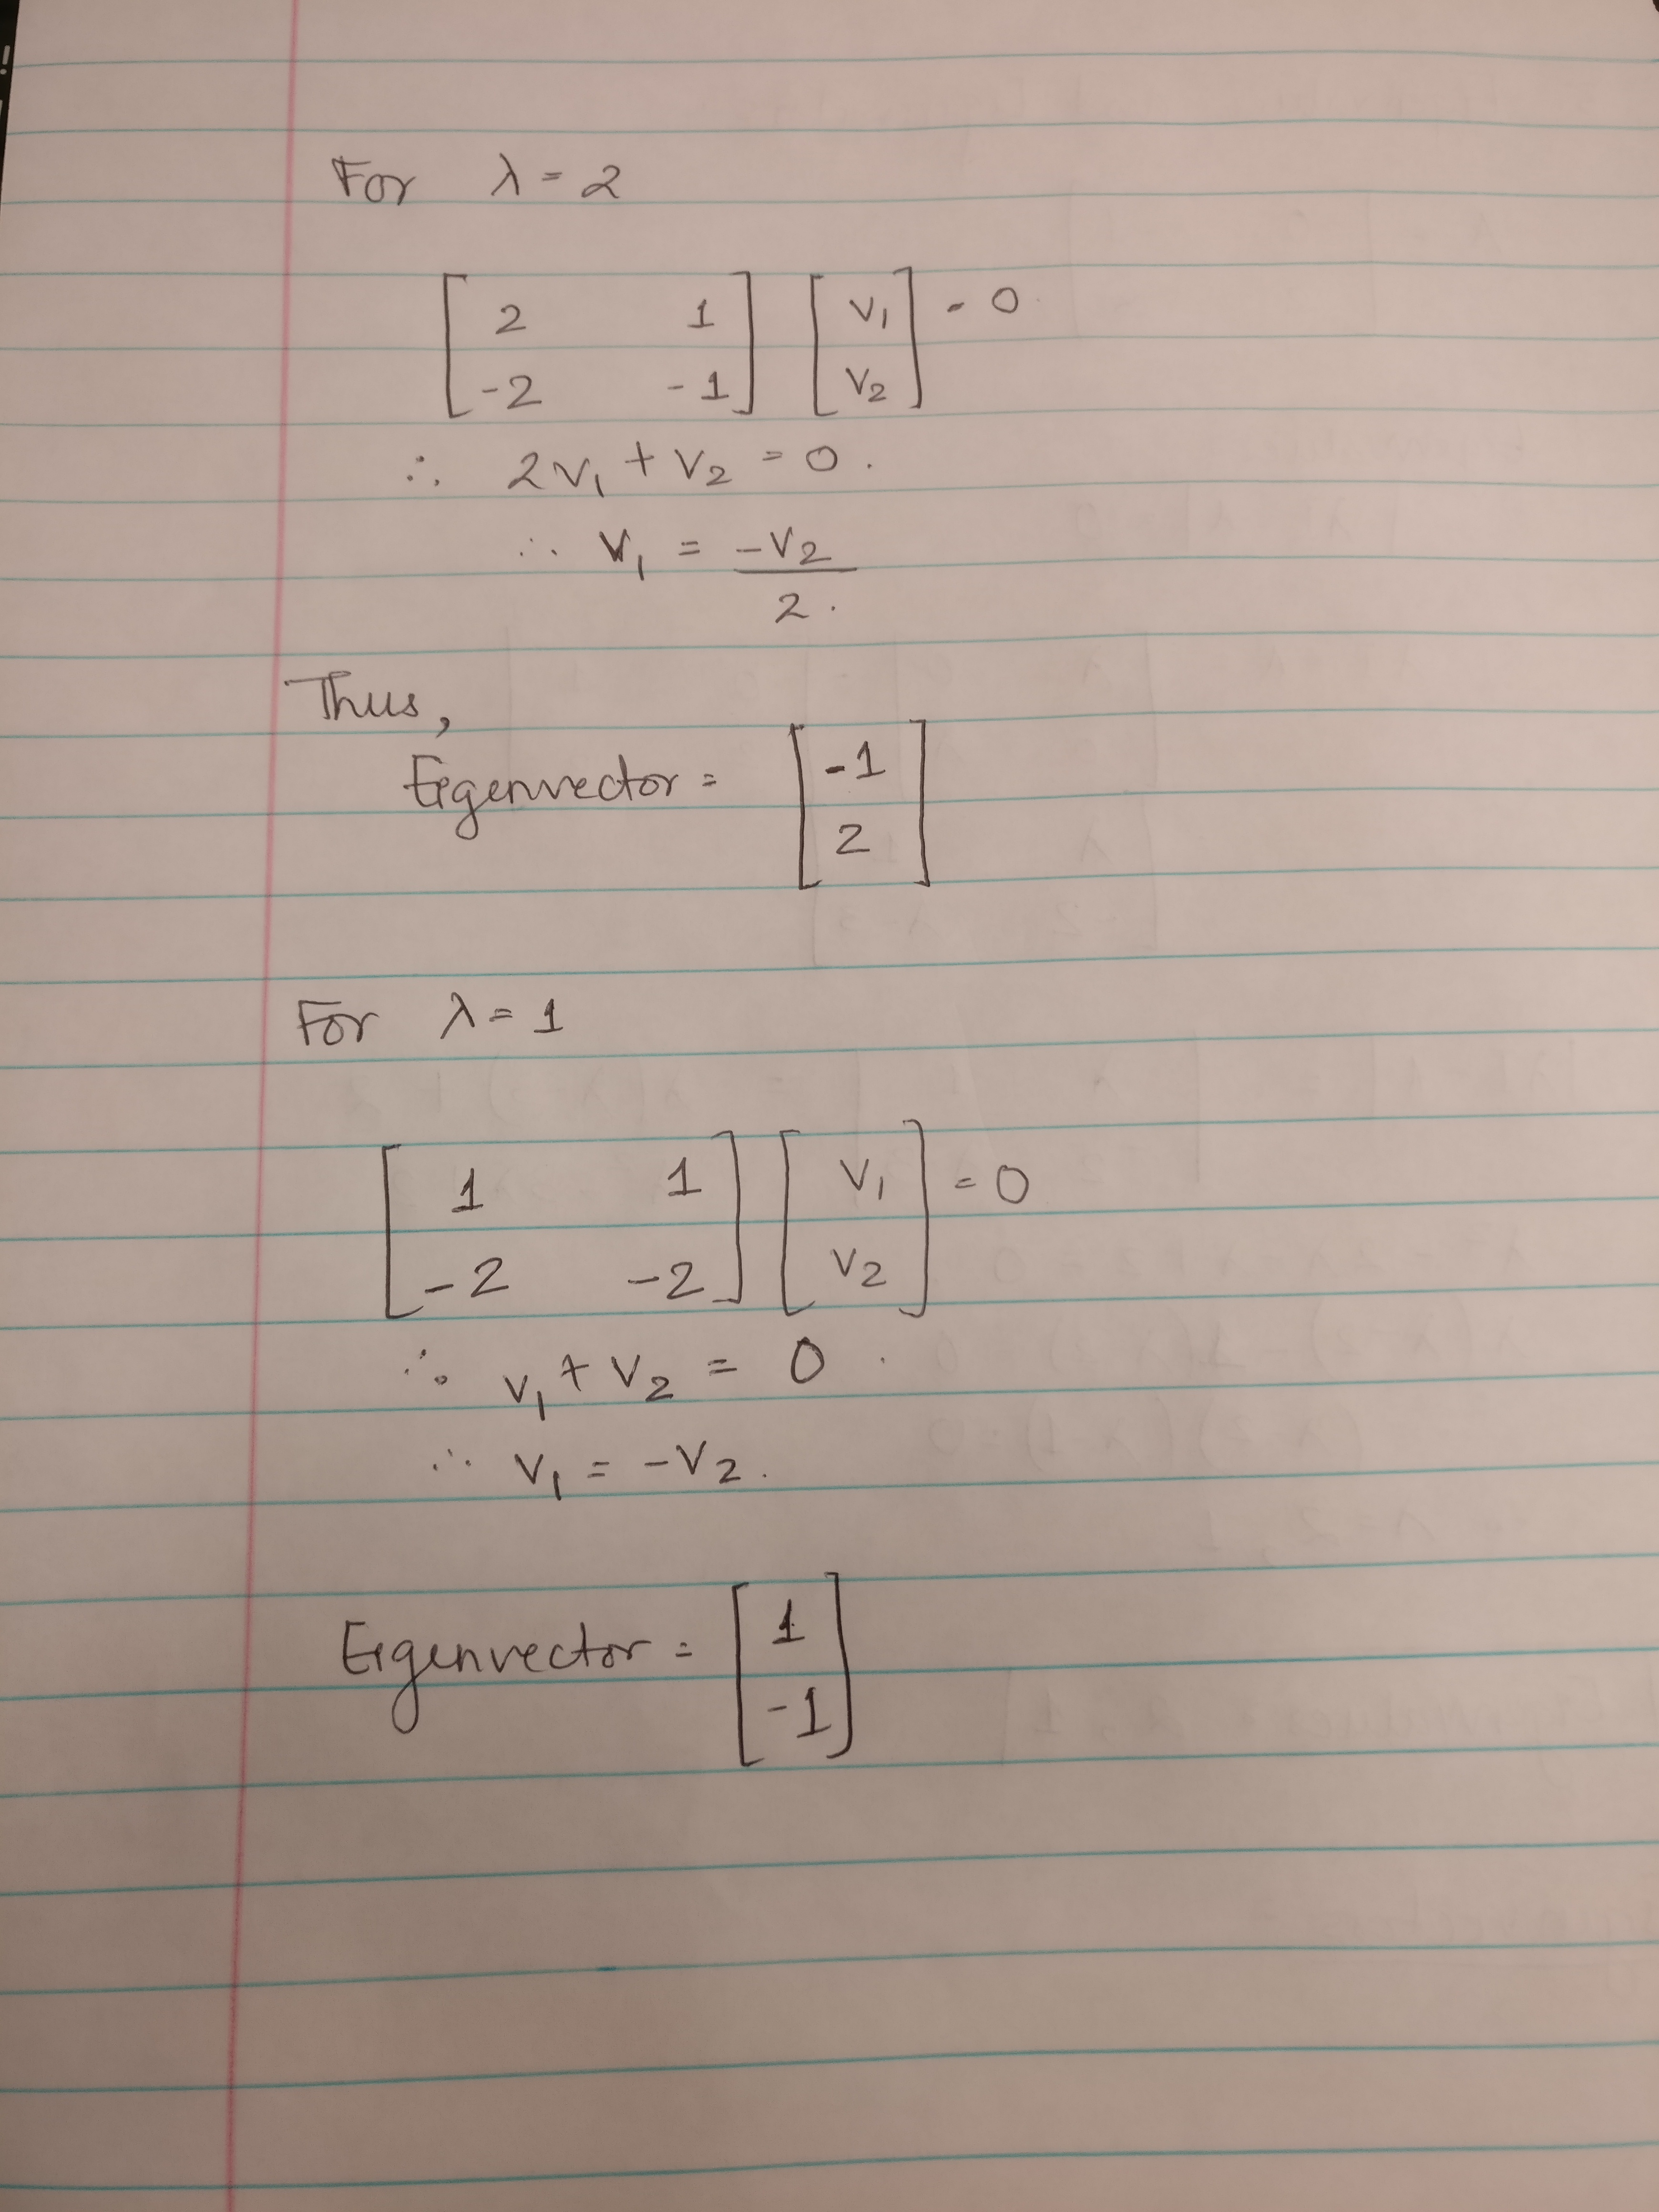 For λ = 2
[ 2 1 ] [ V₁ ] = 0
[ -2 -1 ] [ V₂ ]
∴ 2V₁ + V₂ = 0.
∴ V₁ = -V₂
2.
Thus,
Eigenvector = [ -1 ]
[ 2 ]
For λ = 1
[ 1 1 ] [ V₁ ] = 0
[ -2 -2 ] [ V₂ ]
∴ V₁ + V₂ = 0.
∴ V₁ = -V₂.
Eigenvector = [ 1 ]
[ -1 ]